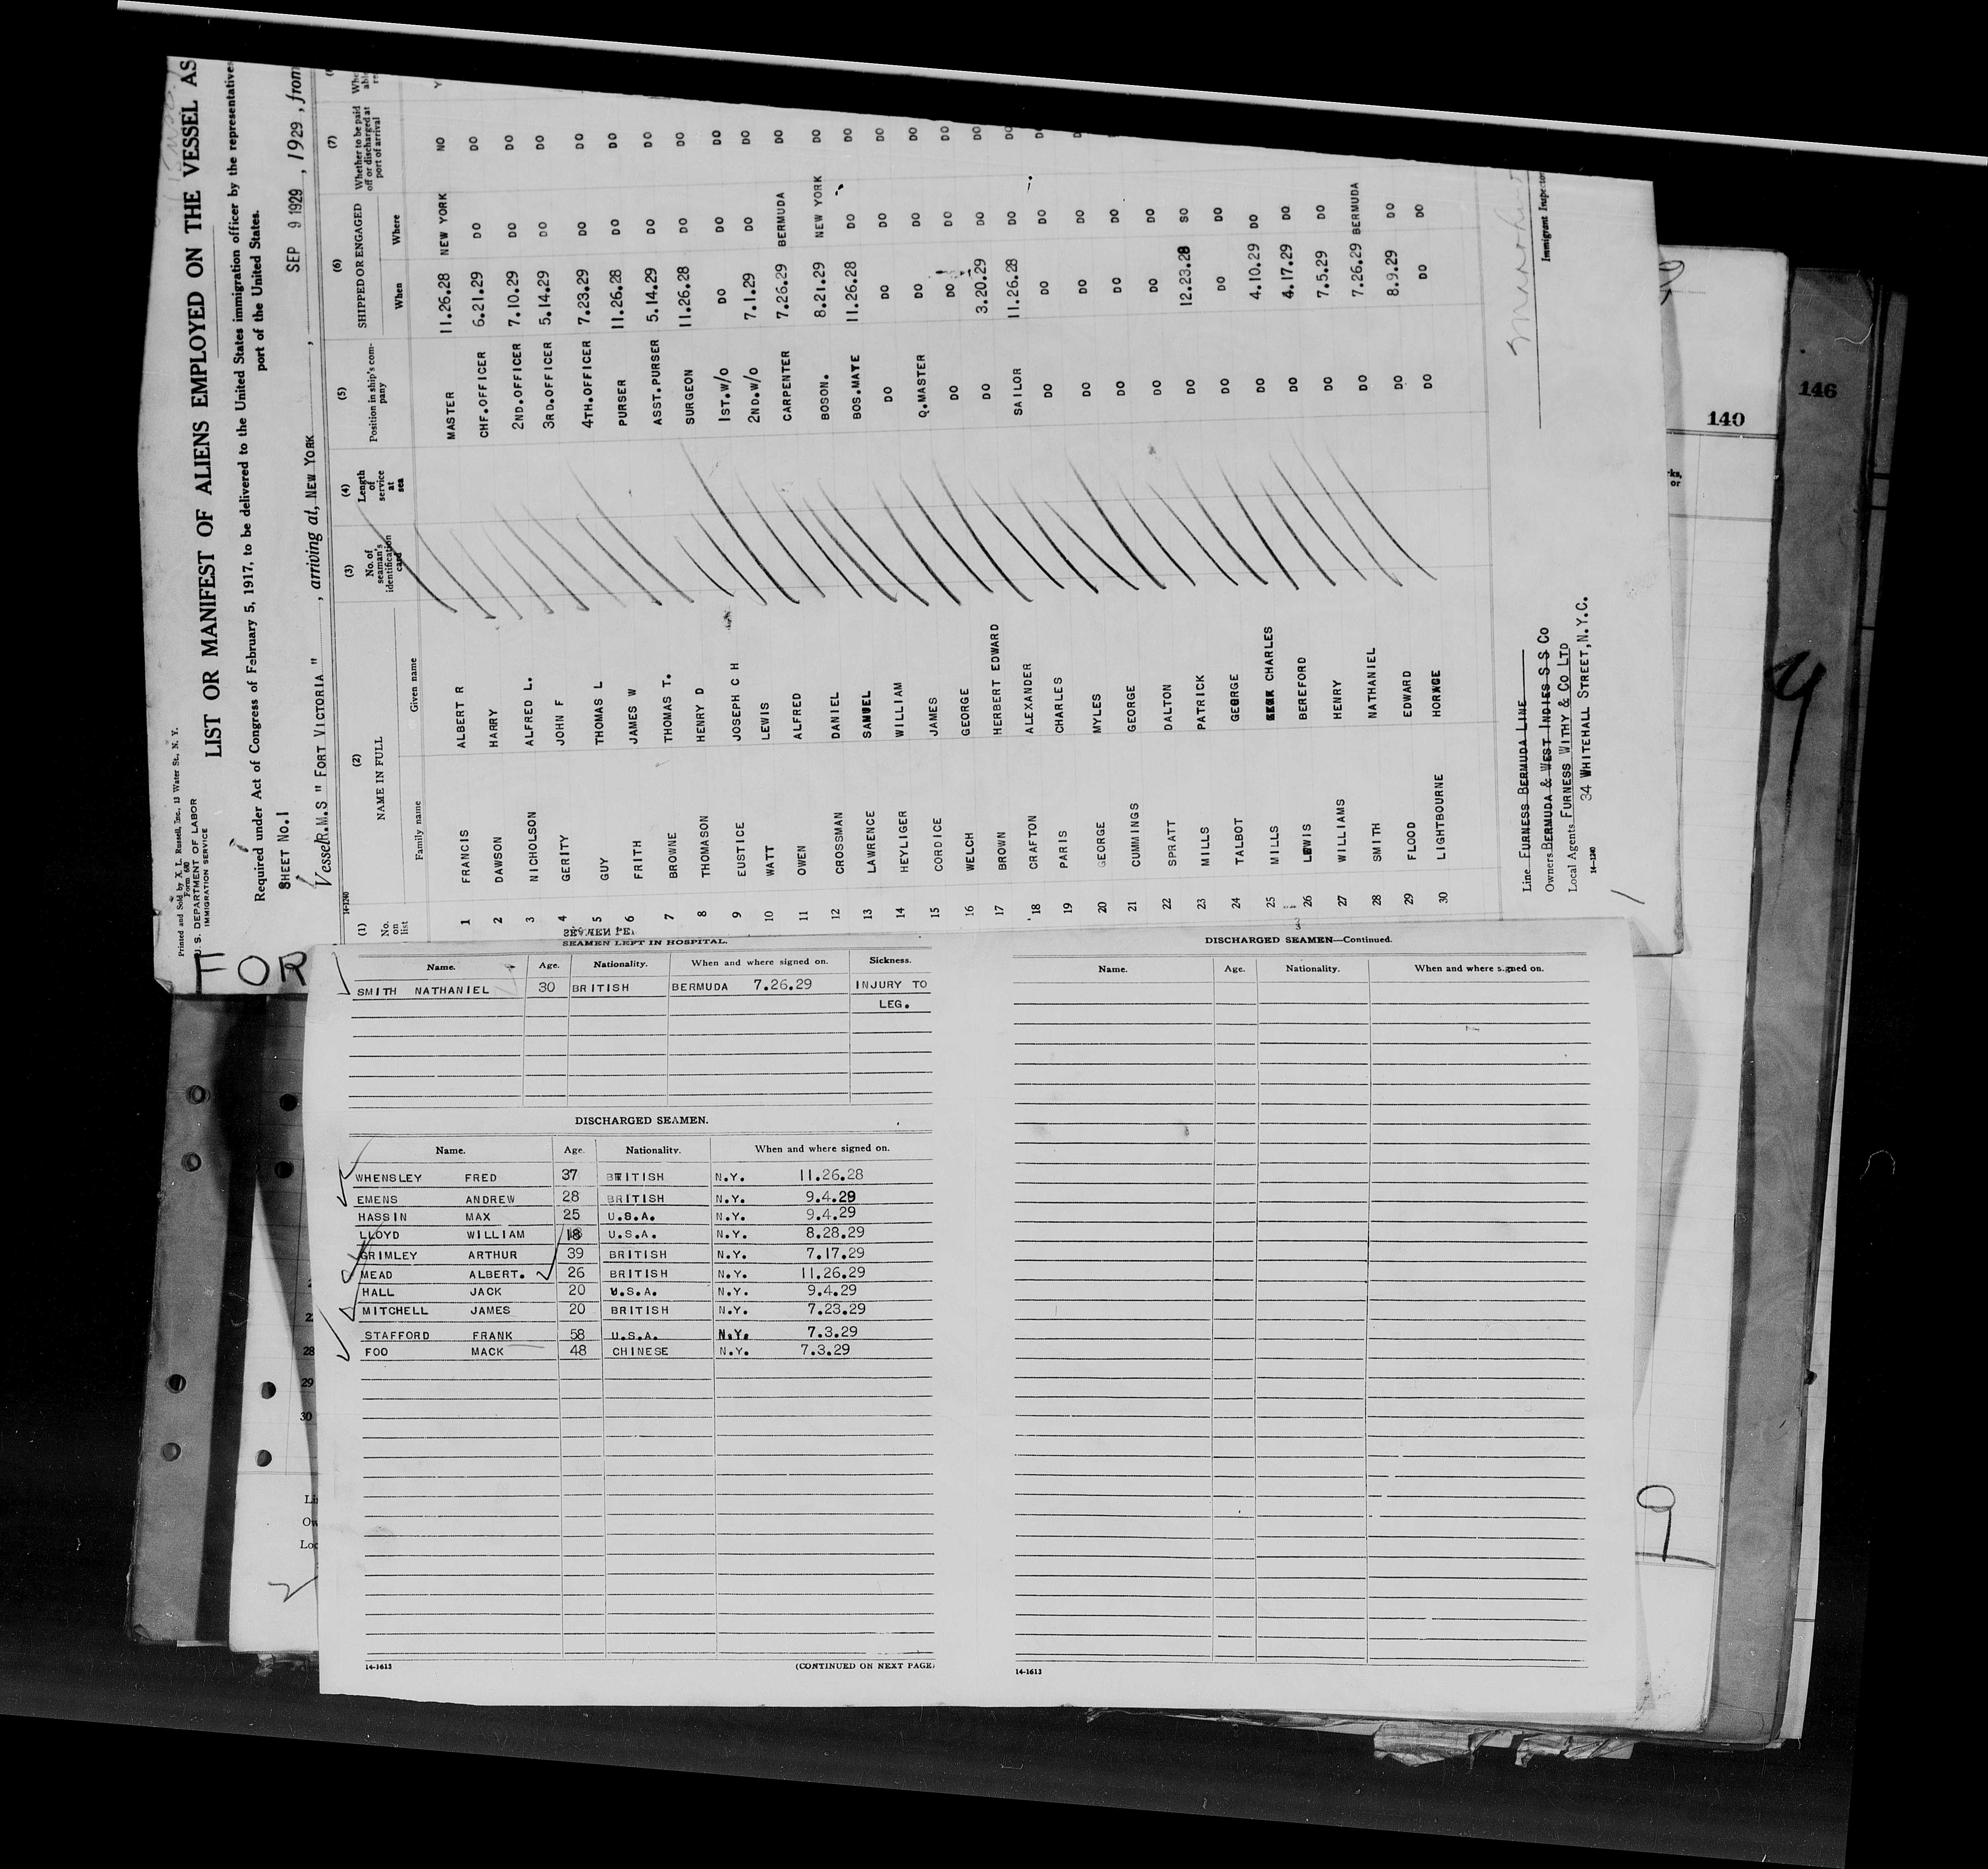 Printed and Sold by X. L. Russell, Inc., 13 Water St., N. Y.
Form 680
U. S. DEPARTMENT OF LABOR
IMMIGRATION SERVICE
FOR
LIST OR MANIFEST OF ALIENS EMPLOYED ON THE VESSEL AS
Required under Act of Congress of February 5, 1917, to be delivered to the United States immigration officer by the representatives
port of the United States.
SHEET No.1
SEP 9 1929
Vessel R.M.S " FORT VICTORIA " , arriving at, NEW YORK , , 1929 , from
14-1240
(1) (2) (3) (4) (5) (6) (7)
No. on list NAME IN FULL No. of seaman's identification card Length of service at sea Position in ship's company SHIPPED OR ENGAGED Whether to be paid off or discharged at port of arrival
Family name Given name When Where
1 FRANCIS ALBERT R MASTER 11.26.28 NEW YORK NO Y
2 DAWSON HARRY CHF.OFFICER 6.21.29 DO DO
3 NICHOLSON ALFRED L. 2ND.OFFICER 7.10.29 DO DO
4 GERITY JOHN F 3RD.OFFICER 5.14.29 DO DO
5 GUY THOMAS L 4TH.OFFICER 7.23.29 DO DO
6 FRITH JAMES W PURSER 11.26.28 DO DO
7 BROWNE THOMAS T. ASST.PURSER 5.14.29 DO DO
8 THOMASON HENRY D SURGEON 11.26.28 DO DO
9 EUSTICE JOSEPH C H 1ST.W/O DO DO DO
10 WATT LEWIS 2ND.W/O 7.1.29 DO DO
11 OWEN ALFRED CARPENTER 7.26.29 BERMUDA DO
12 CROSSMAN DANIEL BOSON. 8.21.29 NEW YORK DO
13 LAWRENCE SAMUEL BOS.MATE 11.26.28 DO DO
14 HEYLIGER WILLIAM DO DO DO DO
15 CORDICE JAMES Q.MASTER DO DO DO
16 WELCH GEORGE DO DO DO DO
17 BROWN HERBERT EDWARD DO 3.20.29 DO DO
18 CRAFTON ALEXANDER SAILOR 11.26.28 DO DO
19 PARIS CHARLES DO DO DO DO
20 GEORGE MYLES DO DO DO
21 CUMMINGS GEORGE DO DO DO
22 SPRATT DALTON DO DO DO
23 MILLS PATRICK DO 12.23.28 SO
24 TALBOT GEORGE DO DO DO
25 MILLS CHARLES DO 4.10.29 DO
26 LEWIS BEREFORD DO 4.17.29 DO
27 WILLIAMS HENRY DO 7.5.29 DO
28 SMITH NATHANIEL DO 7.26.29 BERMUDA
29 FLOOD EDWARD DO 8.9.29 DO
30 LIGHTBOURNE HORACE DO DO DO
Line FURNESS BERMUDA LINE
Owners BERMUDA & WEST INDIES S S Co
Local Agents FURNESS WITHY & CO LTD
34 WHITEHALL STREET, N.Y.C.
14-1240
Immigrant Inspector
146
140
SEAMEN LEFT IN HOSPITAL.
Name. Age. Nationality. When and where signed on. Sickness.
SMITH NATHANIEL 30 BRITISH BERMUDA 7.26.29 INJURY TO
LEG.
DISCHARGED SEAMEN.
Name. Age. Nationality. When and where signed on.
WHENSLEY FRED 37 BRITISH N.Y. 11.26.28
EMENS ANDREW 28 BRITISH N.Y. 9.4.29
HASSIN MAX 25 U.S.A. N.Y. 9.4.29
LLOYD WILLIAM 18 U.S.A. N.Y. 8.28.29
GRIMLEY ARTHUR 39 BRITISH N.Y. 7.17.29
MEAD ALBERT. 26 BRITISH N.Y. 11.26.29
HALL JACK 20 U.S.A. N.Y. 9.4.29
MITCHELL JAMES 20 BRITISH N.Y. 7.23.29
STAFFORD FRANK 58 U.S.A. N.Y. 7.3.29
FOO MACK 48 CHINESE N.Y. 7.3.29
14-1613 (CONTINUED ON NEXT PAGE)
DISCHARGED SEAMEN—Continued.
Name. Age. Nationality. When and where signed on.
14-1613
28
29
30
9